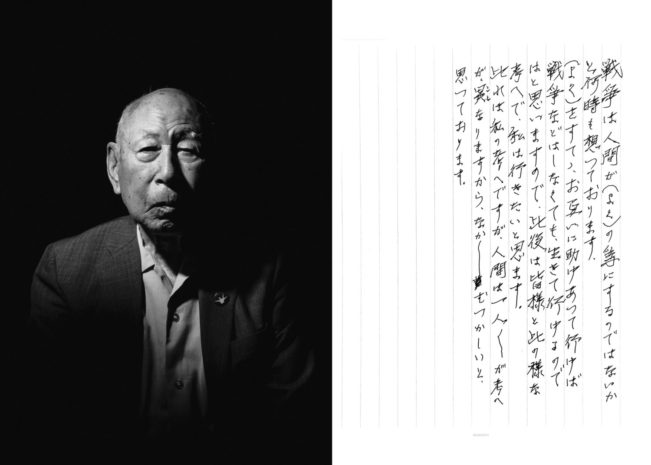 戦争は人間が(よく)の為にするのではないか
と何時も想っております.
(よく)をすてゝ、お互いに助けあって行けば
戦争などはしなくても、生きて行けるので
はと思いますので、此後は皆様と此の様な
考へで、私は行きたいと思ます。
此れは私の考へですが、人間は一人〱が考へ
が、異なりますから、なか〱むつかしいと、
思っております。